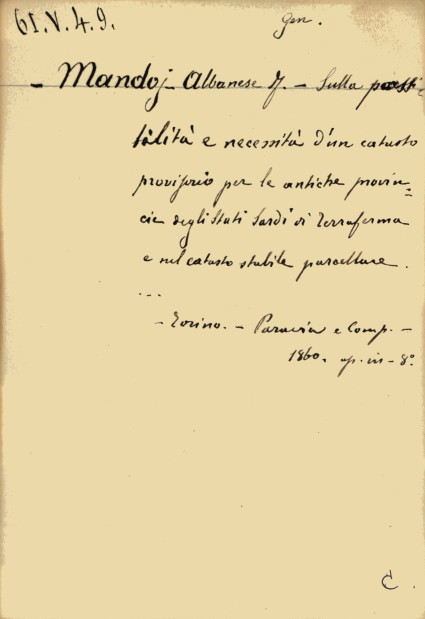 61.V.4.9.
Gen.
- Mandoj Albanese F. - Sulla possi-
bilità e necessità d'un catasto
provvisorio per le antiche provin=
cie degli Stati Sardi di Terraferma
e nel catasto stabile parcellare.
...
- Torino. - Paravia e Comp. -
1860. op. in-8°.
C.